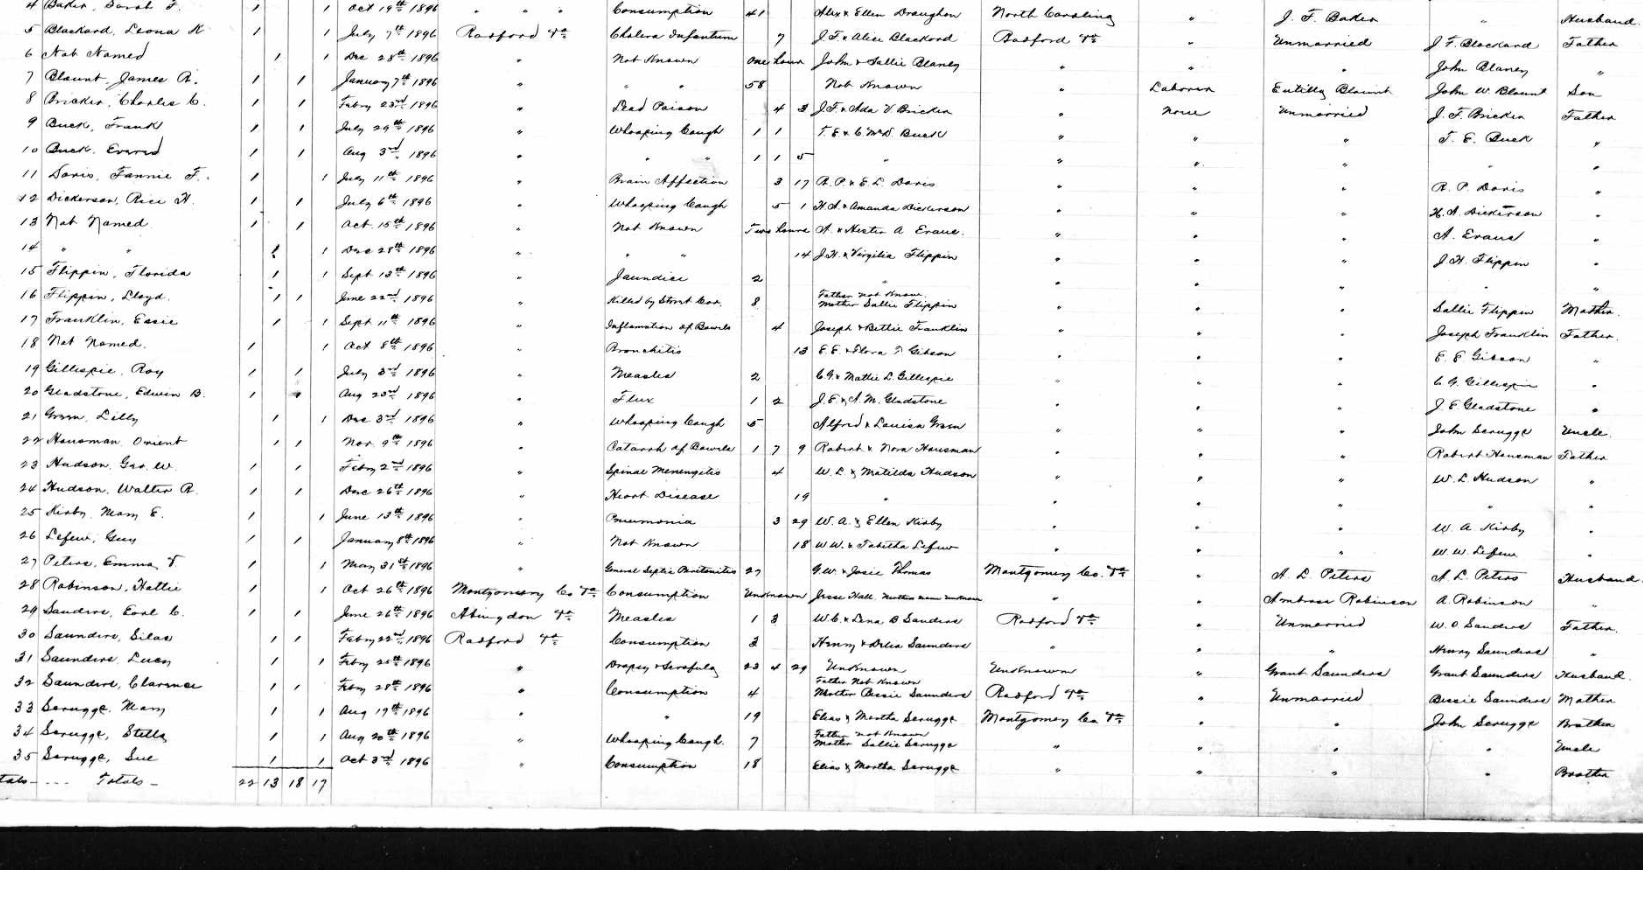 4 Baker, Sarah F. 1 1 Oct 19th 1896 " " " Consumption 41 Alex & Ellen Draughon North Carolina " J. F. Baker " Husband
5 Blackard, Leona K 1 1 July 7th 1896 Radford Va Cholera Infantum 7 J. F. & Alice Blackard Radford Va " Unmarried J F. Blackard Father
6 Not Named 1 1 Dec 28th 1896 " Not Known One hour John & Sallie Blaney " " John Blaney "
7 Blaunt, James R. 1 1 January 7th 1896 " " " 58 Not Known " Laborer Blaunt John W. Blaunt Son
8 Bricker, Charles C. 1 1 Febry 23rd 1896 " Lead Poison 4 3 J. F. & Ada V Bricker " None Unmarried J. F. Bricker Father
9 Buck, Frank 1 1 July 29th 1896 " Whooping Cough 1 1 T. E & Buck " " " T. E. Buck "
10 Buck, Everad 1 1 Aug 3rd 1896 " " " 1 1 5 " " " " " "
11 Davis, Fannie F. 1 1 July 11th 1896 " Brain Affection 3 17 R. P. & E. L Davis " " " R. P Davis "
12 Dickerson, Rice H. 1 1 July 6th 1896 " Whooping Cough 5 1 H. A & Amanda Dickerson " " " H. A. Dickerson "
13 Not Named 1 1 Oct. 15th 1896 " Not Known Two hours A. & Hester A Evans. " " " A. Evans "
14 " " 1 1 Dec 28th 1896 " " " 14 J. H. & Virgilia Flippin " " " J H. Flippin "
15 Flippin, Florida 1 1 Sept 13th 1896 " Jaundice 2 " " " " " "
16 Flippin, Lloyd. 1 1 June 22nd 1896 " Killed by Street Car. 8 Father not Known Mother Sallie Flippin " " " Sallie Flippin Mother.
17 Franklin, Essie 1 1 Sept 11th 1896 " Inflamation of Bowels 4 Joseph & Bettie Franklin " " " Joseph Franklin Father.
18 Not Named. 1 1 Oct 8th 1896 " Bronchitis 13 E. E. & Flora F Gibson " " " E. E Gibson "
19 Gillespie, Roy 1 1 July 3rd 1896 " Measles 2 C. G. & Mattie L Gillespie " " " C G. Gillespie "
20 Gladstone, Edwin B. 1 1 Aug 23rd 1896 " Flux 1 2 J. E. & A. M. Gladstone " " " J. E Gladstone "
21 Lilly 1 1 Dec 3rd 1896 " Whooping Cough 5 Alfred & Louisa " " " John Scruggs Uncle.
22 Hausman, Orient 1 1 Nov. 9th 1896 " Catarrh of Bowels 1 7 9 Robert & Nora Hausman " " " Robert Hausman Father
23 Hudson, Geo. W. 1 1 Febry 2nd 1896 " Spinal Menengetis 4 W. L & Matilda Hudson " " " W. L Hudson "
24 Hudson, Walter R. 1 1 Dec 26th 1896 " Heart Disease 19 " " " " " "
25 Kirby, Mary E. 1 1 June 13th 1896 " Pneumonia 3 29 W. A. & Ellen Kirby " " " W. A Kirby "
26 Lefew, Guy 1 1 January 8th 1896 " Not Known 18 W. W. & Tabitha Lefew " " " W. W. Lefew "
27 Peters, Emma V. 1 1 May 31st 1896 " General Septic Peritonitis 27 G. W. & Josie Thomas Montgomery Co. Va " A. L. Peters A. L Peters Husband.
28 Robinson, Hattie 1 1 Oct 26th 1896 Montgomery Co Va Consumption Unknown Jesse Hall. Mother name unknown " " Ambrose Robinson A. Robinson "
29 Sanders, Earl C. 1 1 June 26th 1896 Abingdon Va Measles 1 3 W. C. & Lena B Sanders Radford Va " Unmarried W. O. Sanders Father.
30 Saunders, Silas 1 1 Febry 22nd 1896 Radford Va Consumption 3 Henry & Delia Saunders " " " Henry Saunders "
31 Saunders, Lucy 1 1 Febry 25th 1896 " Dropsy & Scrofula 23 4 29 Unknown Unknown " Grant Saunders Grant Saunders Husband.
32 Saunders, Clarence 1 1 Febry 28th 1896 " Consumption 4 Father Not Known Mother Bessie Saunders Radford Va " Unmarried Bessie Saunders Mother
33 Scruggs, Mary 1 1 Aug 19th 1896 " " 19 Elias & Martha Scruggs Montgomery Co Va " " John Scruggs Brother
34 Scruggs, Stella 1 1 Aug 20th 1896 " Whooping Cough. 7 Father not Known Mother Sallie Scruggs " " " " Uncle
35 Scruggs, Sue 1 1 Oct 3rd 1896 " Consumption 18 Elias & Martha Scruggs " " " " Brother
Totals - 22 13 18 17